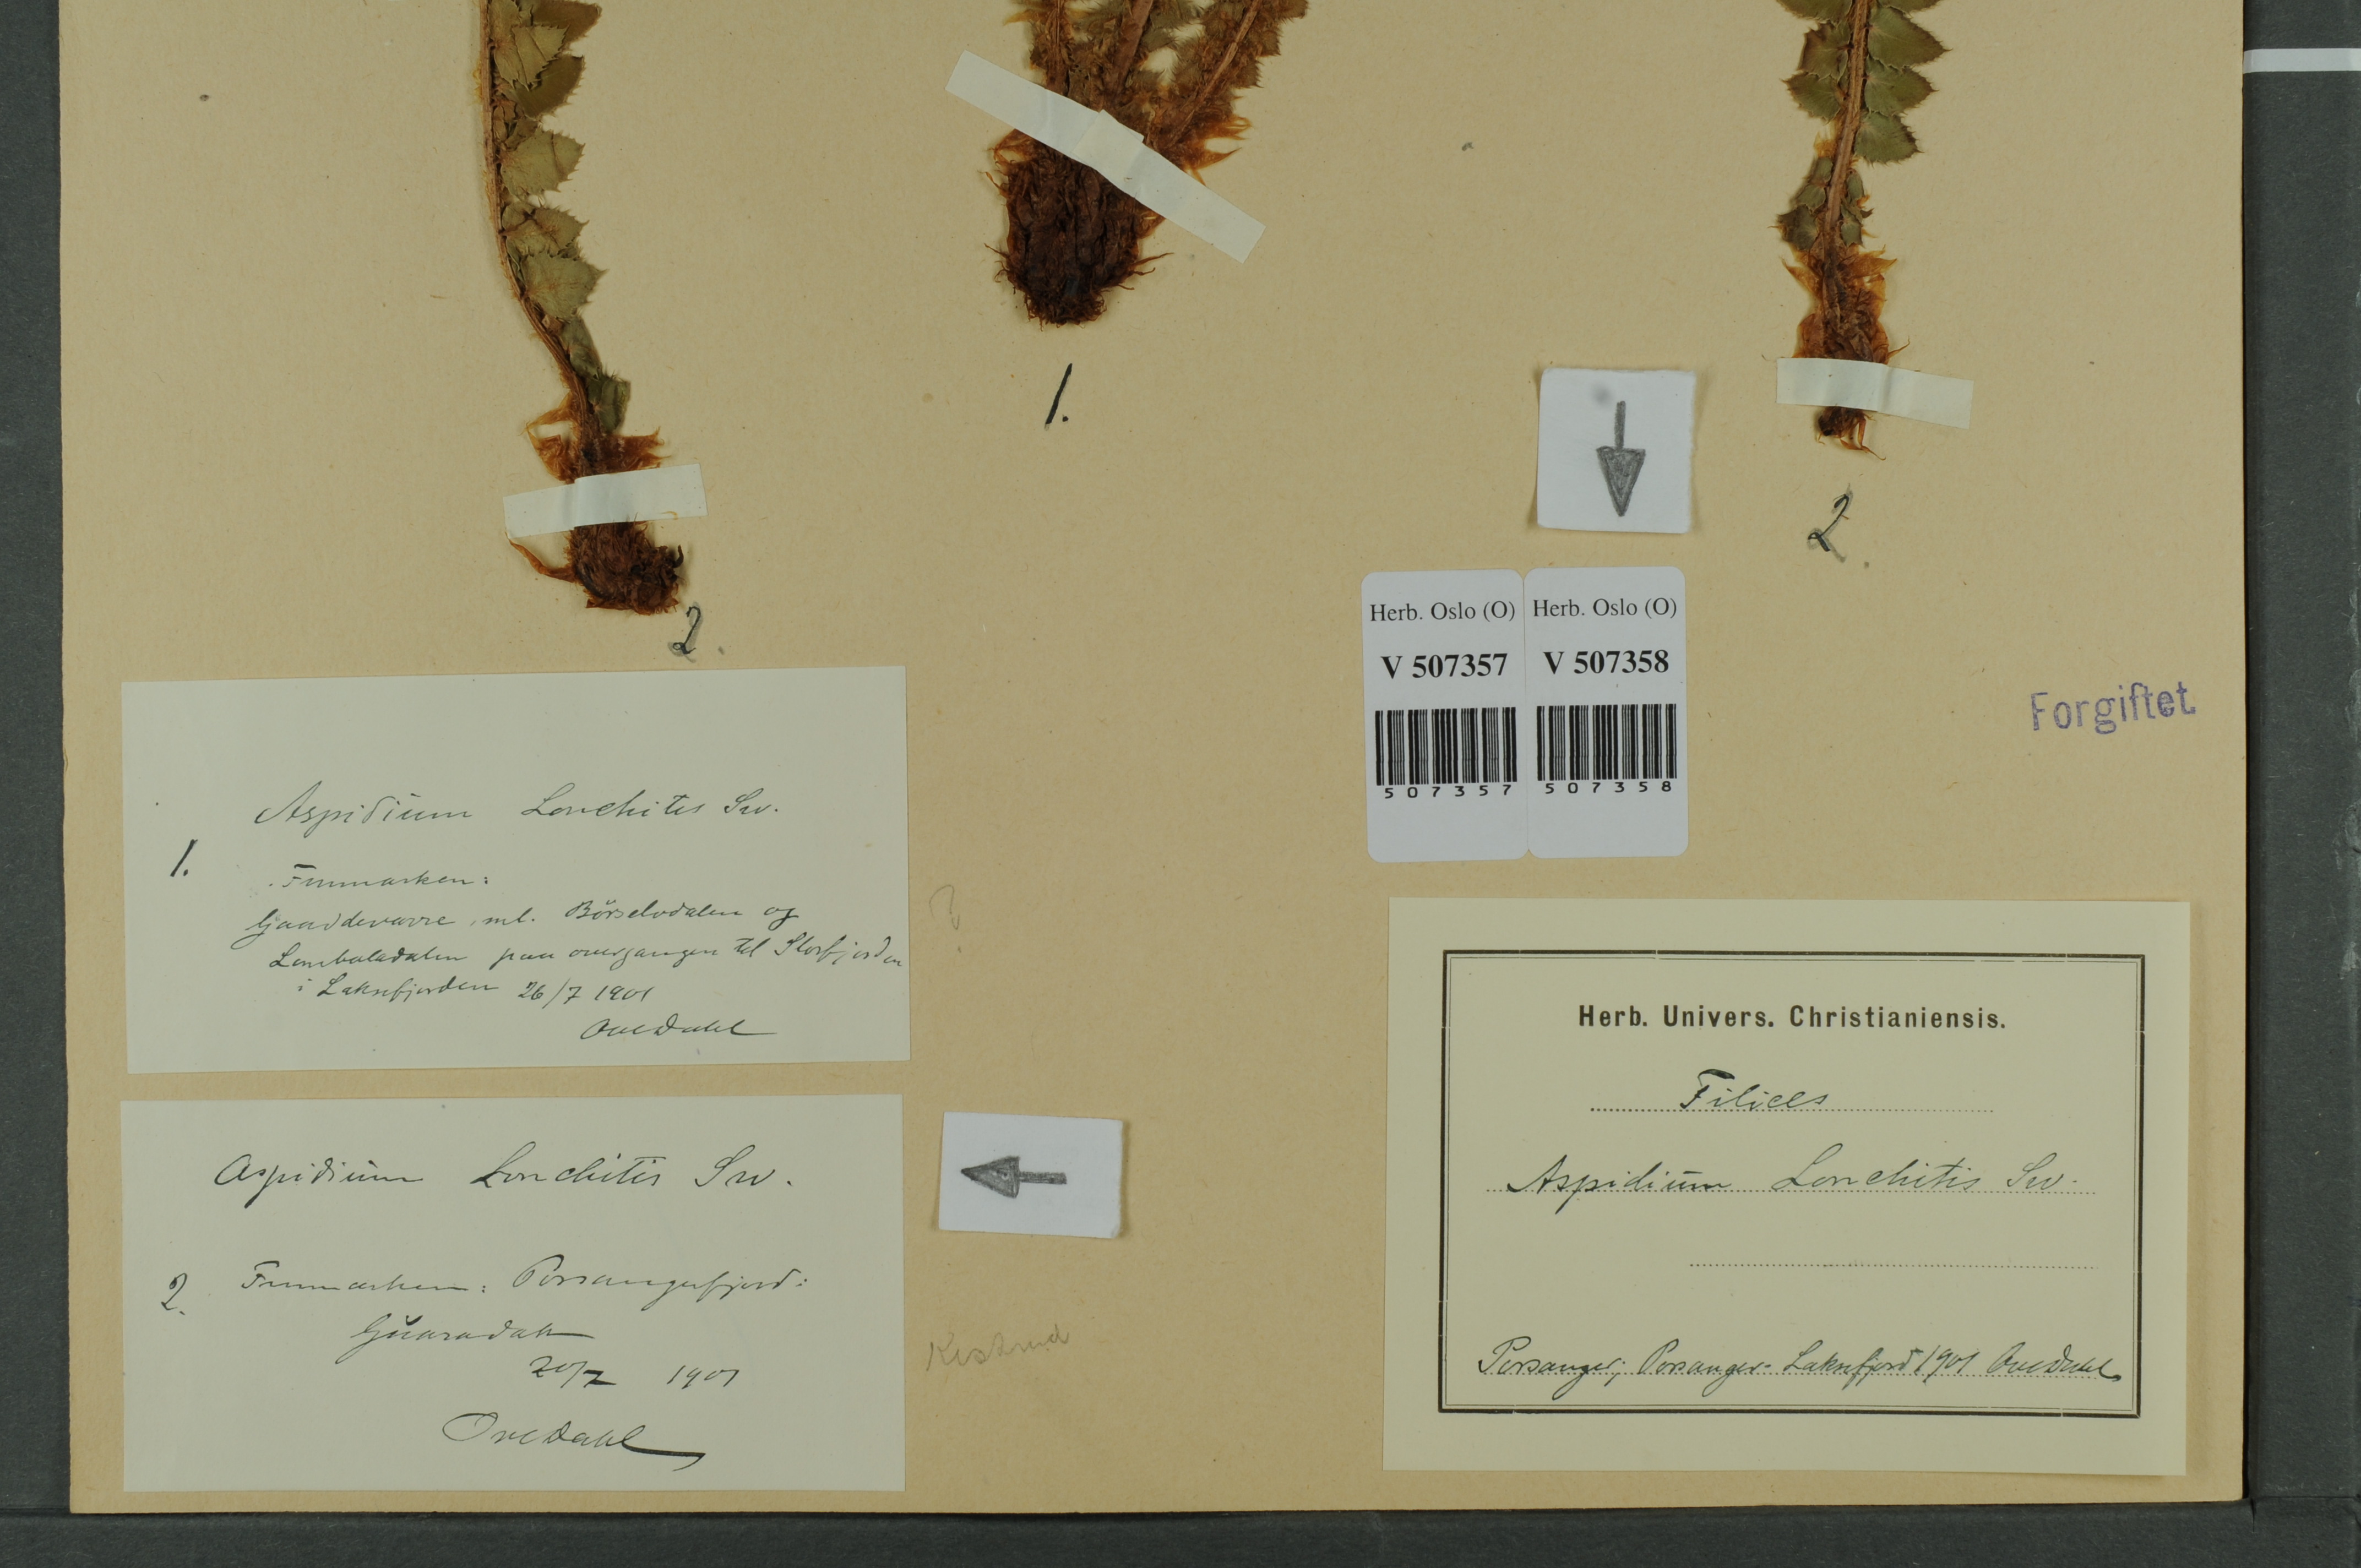 1.
2.
2.
Herb. Oslo (O)
V 507357
507357
Herb. Oslo (O)
V 507358
507358
Forgiftet
Aspidium Lonchitis Sw.
1.
Finmarken:
ml. Börselvdalen og
paa overgangen til Storfjorden
i Laksefjorden 26/7 1901
Ove Dahl
Aspidium Lonchitis Sw.
2. Finmarken: Porsangerfjord:
20/7 1901
Ove Dahl
?
Kistrand
Herb. Univers. Christianiensis.
Filices
Aspidium Lonchitis Sw.
Porsanger; Porsanger-Laksefjord 1901 Ove Dahl